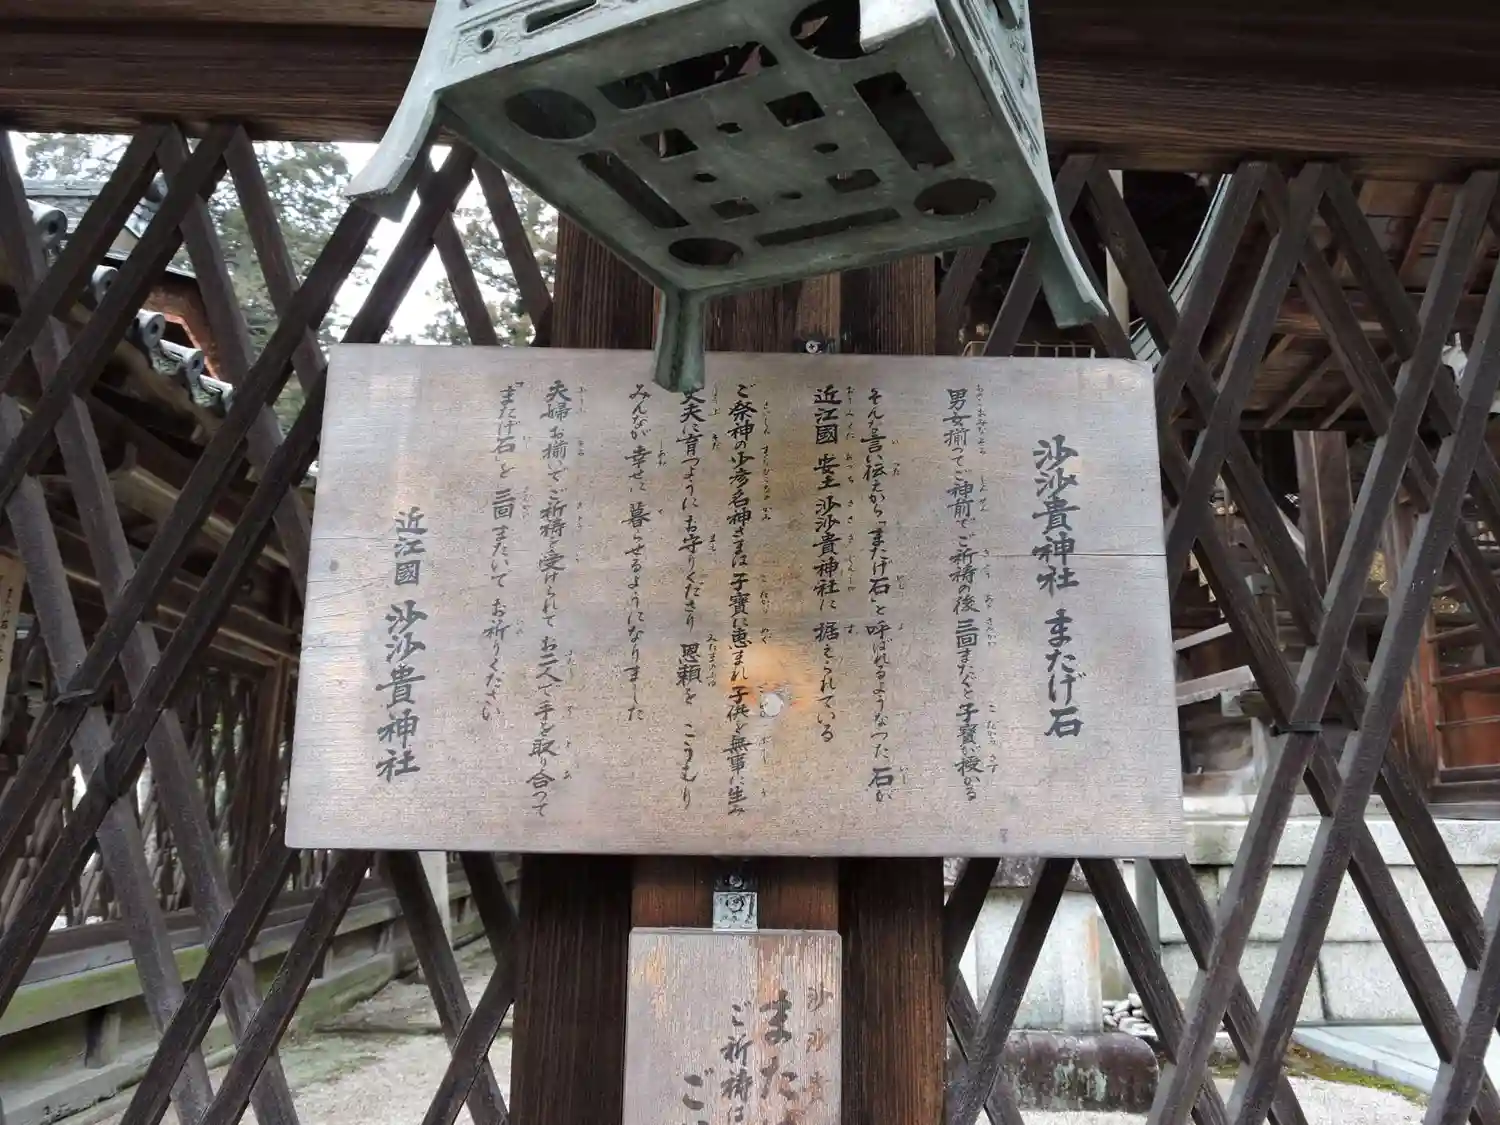 沙沙貴神社 またげ石
男女揃ってご神前でご祈祷の後 三回またぐと子寶が授かる
そんな言い伝えから「またげ石」と呼ばれるようなった 石が
近江國 安土 沙沙貴神社に 据えられている
ご祭神の少彦名神さまは 子寶に恵まれ 子供を無事に生み
丈夫に育つように お守りくださり 恩頼を こうむり
みんなが 幸せに 暮らせるようになりました
夫婦お揃いでご祈祷を受けられて お二人で手を取り合って
「またげ石」を 三回 またいで お祈りください
近江國 沙沙貴神社
沙沙貴
また
ご祈祷は
ご